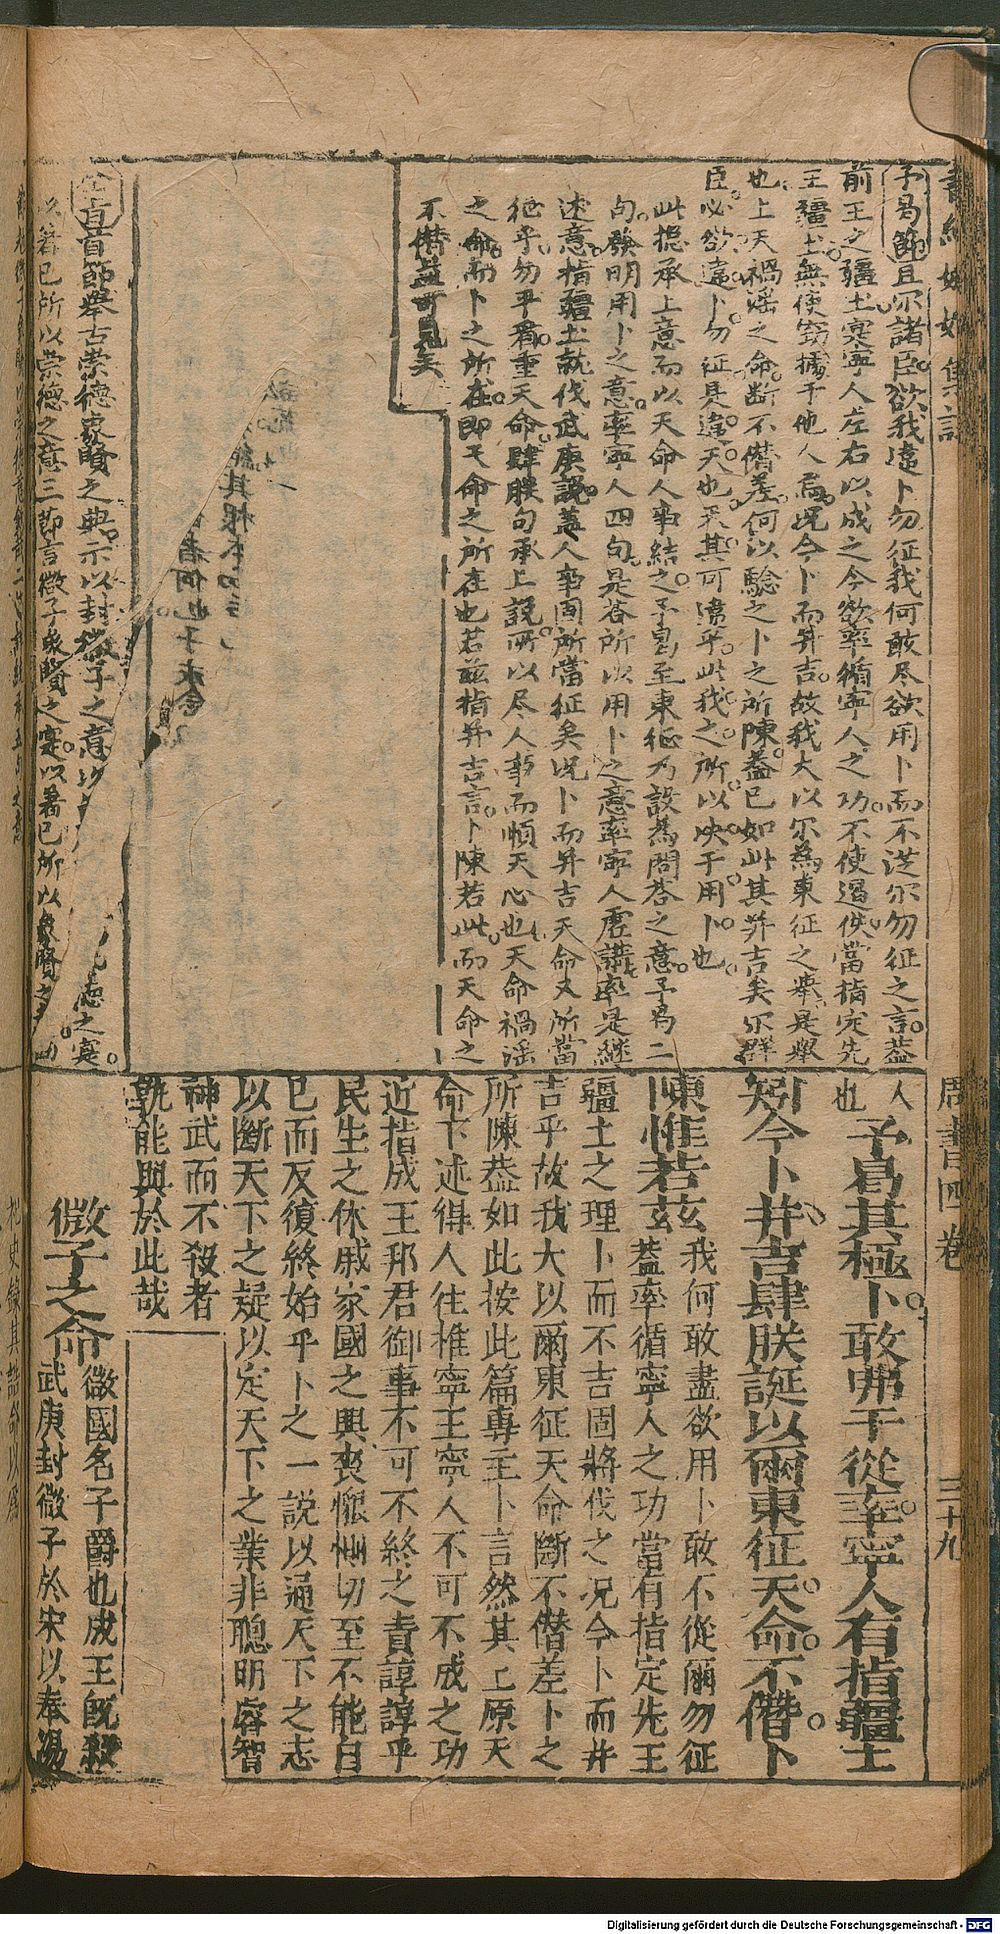 予曷節且尔諸臣欲我違卜勿征我何敢尽欲用卜而不從尔勿征之言盖
前王之疆土寔寧人左右以成之今欲率循寧人之功不使遏佚當指定先
王疆土無使窃據于他人焉况今卜而并吉故我大以尔為東征之舉是舉
也上天禍淫之命断不僭差何以驗之卜之所陳盖已如此其并吉矣尔群
臣必欲違卜勿征是違天也天其可違乎此我之所以决于用卜也
此揔承上意而以天命人事結之予曷至東征乃設為問答之意予曷二
句發明用卜之意率寧人四句是答所以用卜之意率寧人虛講率是継
述意指疆土就伐武庚說盖人事固所當征矣况卜而并吉天命又所當
征乎勿平看重天命肆朕句承上說所以尽人事而順天心也天命禍淫
之命而卜之所在即天命之所在也若兹指并吉言卜陳若此而天命之
不僭益可見矣
絶其根本
者何也予永念
全旨首節舉古崇德象賢之典示以封微子之意
德之寔
以著己所以崇德之意三節言微子象賢之寔以著己所以象賢之
周書四卷
三十九
人
也
予曷其極卜敢弗于從率寧人有指疆土
矧今卜并吉肆朕誕以爾東征天命不僭卜
陳惟若茲
我何敢盡欲用卜敢不從爾勿征
蓋率循寧人之功當有指定先王
疆土之理卜而不吉固將伐之况今卜而并
吉乎故我大以爾東征天命斷不僭差卜之
所陳蓋如此按此篇專主卜言然其上原天
命下述得人往推寧王寧人不可不成之功
近指成王邦君御事不可不終之責諄諄乎
民生之休戚家國之興喪懇惻切至不能自
已而反復終始乎卜之一說以通天下之志
以斷天下之疑以定天下之業非聰明睿智
神武而不殺者
孰能與於此哉
微子之命
微國名子爵也成王既殺
武庚封微子於宋以奉湯
Digitalisierung gefördert durch die Deutsche Forschungsgemeinschaft - DFG